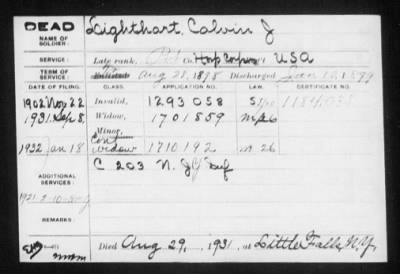 DEAD Lighthart, Calvin J
NAME OF SOLDIER:
SERVICE: Late rank, Pvt Co. Hosp Corps U S A
TERM OF SERVICE: Aug 28, 1898 Discharged Jan 1899
DATE OF FILING. CLASS. APPLICATION NO. LAW. CERTIFICATE NO.
1902 Nov 22 Invalid, 1293058
1931 Sep 8, Widow, 1701859 m26
Minor,
1932 Jan 18 Cont Widow 1710192 m 26
C 203 N. Inf
ADDITIONAL SERVICES:
REMARKS:
Died Aug 29, 1931, at Little Falls, N.Y.